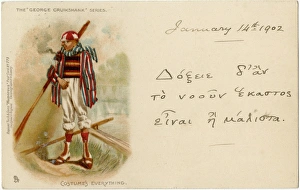 THE "GEORGE CRUIKSHANK" SERIES.
January 14th. 1902
Δόξειε δ' ἂν
τὸ νοοῦν ἕκαστος
εἶναι ἢ μάλιστα.
COSTUME'S EVERYTHING.